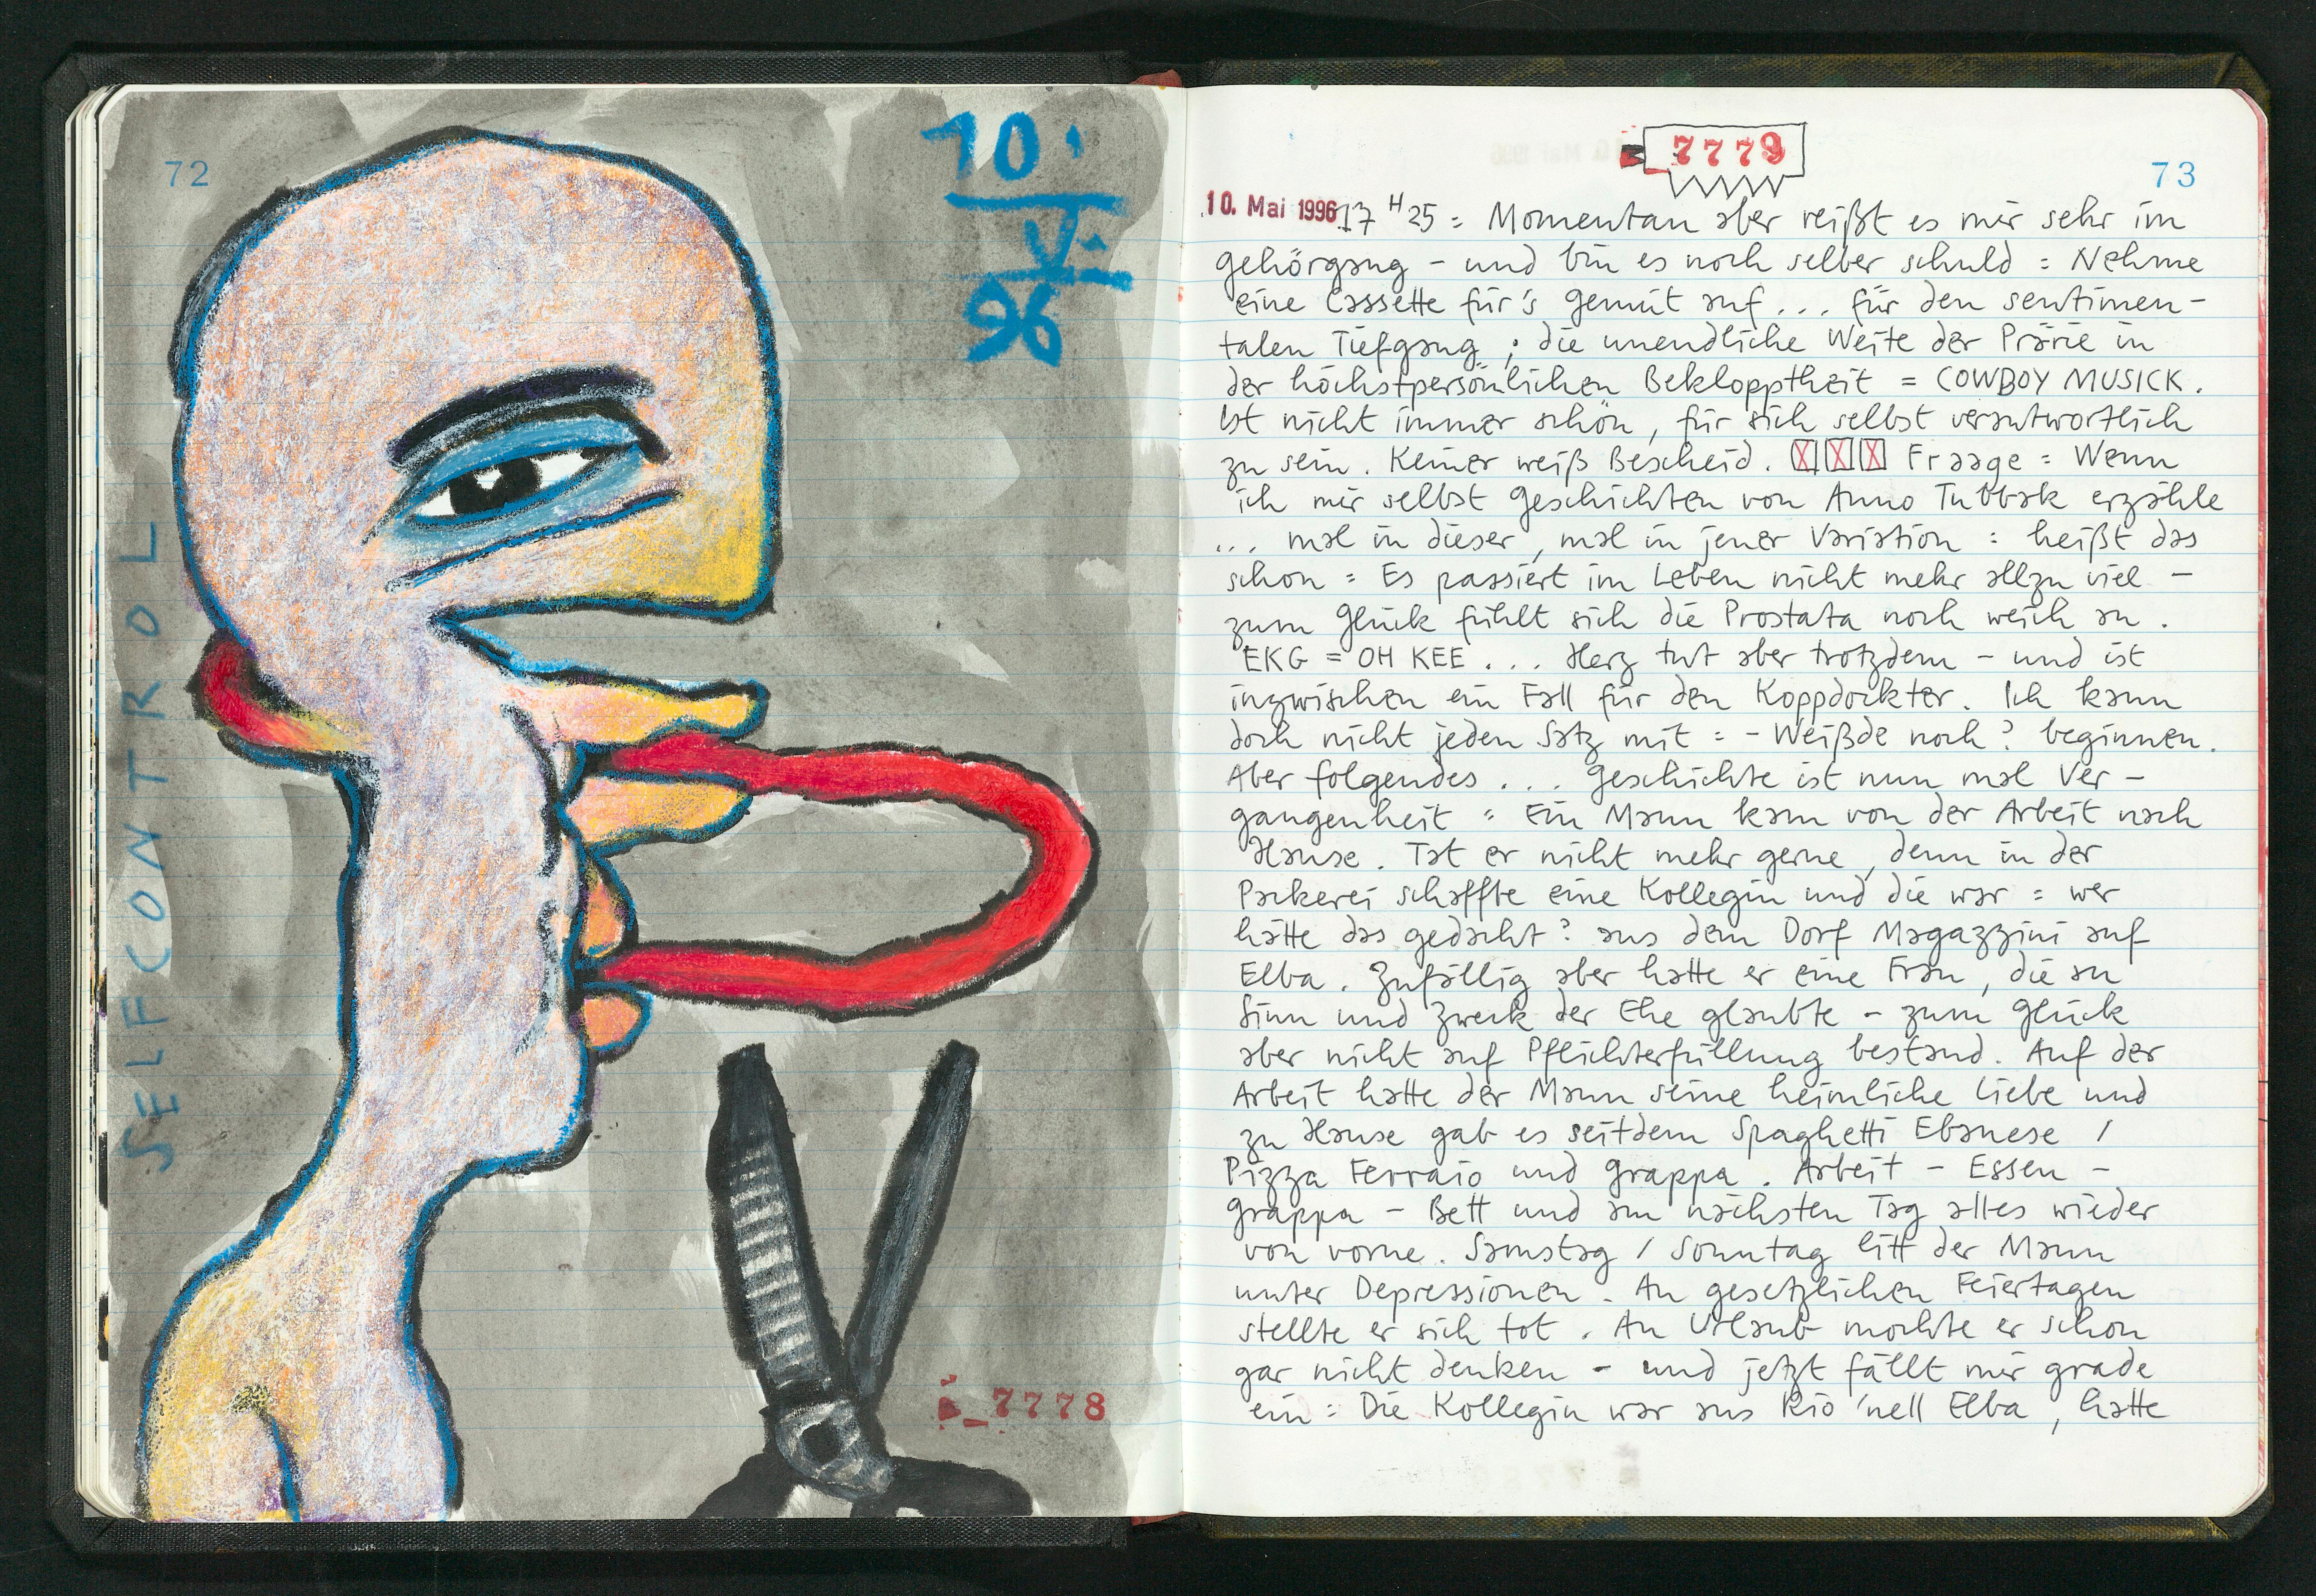 72
10.
V.
96
SELFCONTROL
7778
7779
73
10. Mai 1996 17 H 25 = Momentan aber reißt es mir sehr im
gehörgang - und bin es noch selber schuld = Nehme
eine Cassette für's gemüt auf ... für den sentimen-
talen Tiefgang ; die unendliche Weite der Prärie in
der höchstpersönlichen Beklopptheit = COWBOY MUSICK.
Ist nicht immer schön, für sich selbst verantwortlich
zu sein. Keiner weiß Bescheid. Fraage = Wenn
ich mir selbst geschichten von Anno Tubbak erzähle
... mal in dieser, mal in jener Variation : heißt das
schon = Es passiert im Leben nicht mehr allzu viel -
zum Glück fühlt sich die Prostata noch weich an.
EKG = OH KEE ... Herz tut aber trotzdem - und ist
inzwischen ein Fall für den Koppdockter. Ich kann
doch nicht jeden Satz mit = - Weißde noch? beginnen.
Aber folgendes ... geschichte ist nun mal Ver-
gangenheit = Ein Mann kam von der Arbeit nach
Hause. Tat er nicht mehr gerne, denn in der
Packerei schaffte eine Kollegin und die war = wer
hätte das gedacht? aus dem Dorf Magazzini auf
Elba. Zufällig aber hatte er eine Frau, die an
Sinn und Zweck der Ehe glaubte - zum Glück
aber nicht auf Pflichterfüllung bestand. Auf der
Arbeit hatte der Mann seine heimliche Liebe und
zu Hause gab es seitdem Spaghetti Ebanese /
Pizza Ferraio und grappa. Arbeit - Essen -
grappa - Bett und am nächsten Tag alles wieder
von vorne. Samstag / Sonntag litt der Mann
unter Depressionen. An gesetzlichen Feiertagen
stellte er sich tot. An Urlaub mochte er schon
gar nicht denken - und jetzt fällt mir grade
ein = Die Kollegin war aus Rio 'nell Elba, hatte